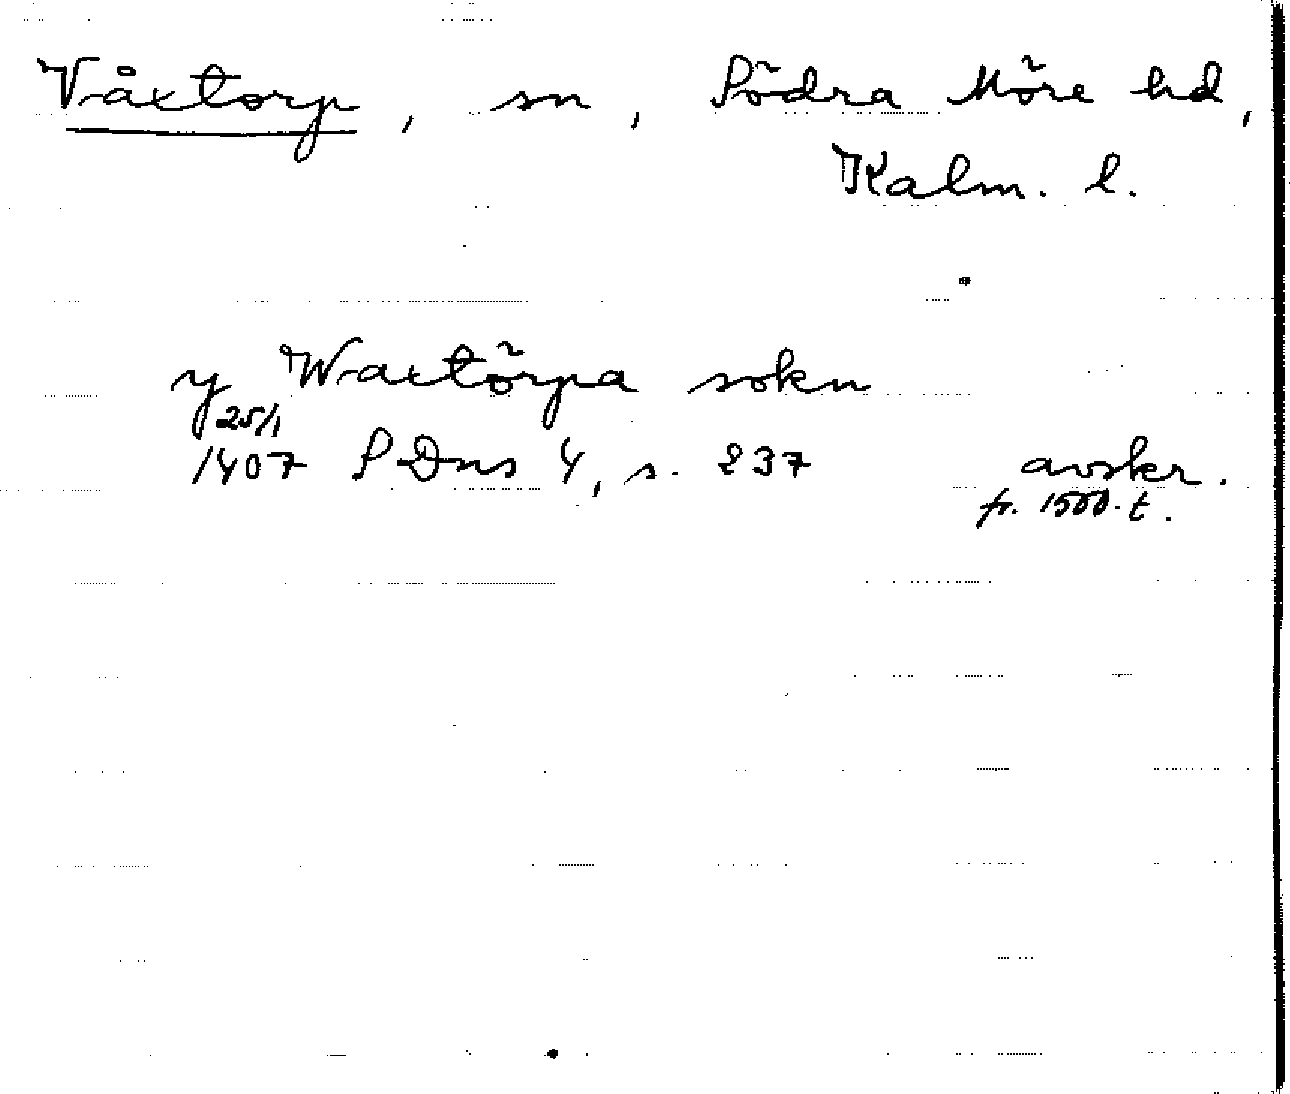 Våxtorp, sn, Södra Möre hd,
Kalm. l.
y Waxtörpa sokn
25/1
1407 SDns 4, s. 237 avskr.
fr. 1500-t.